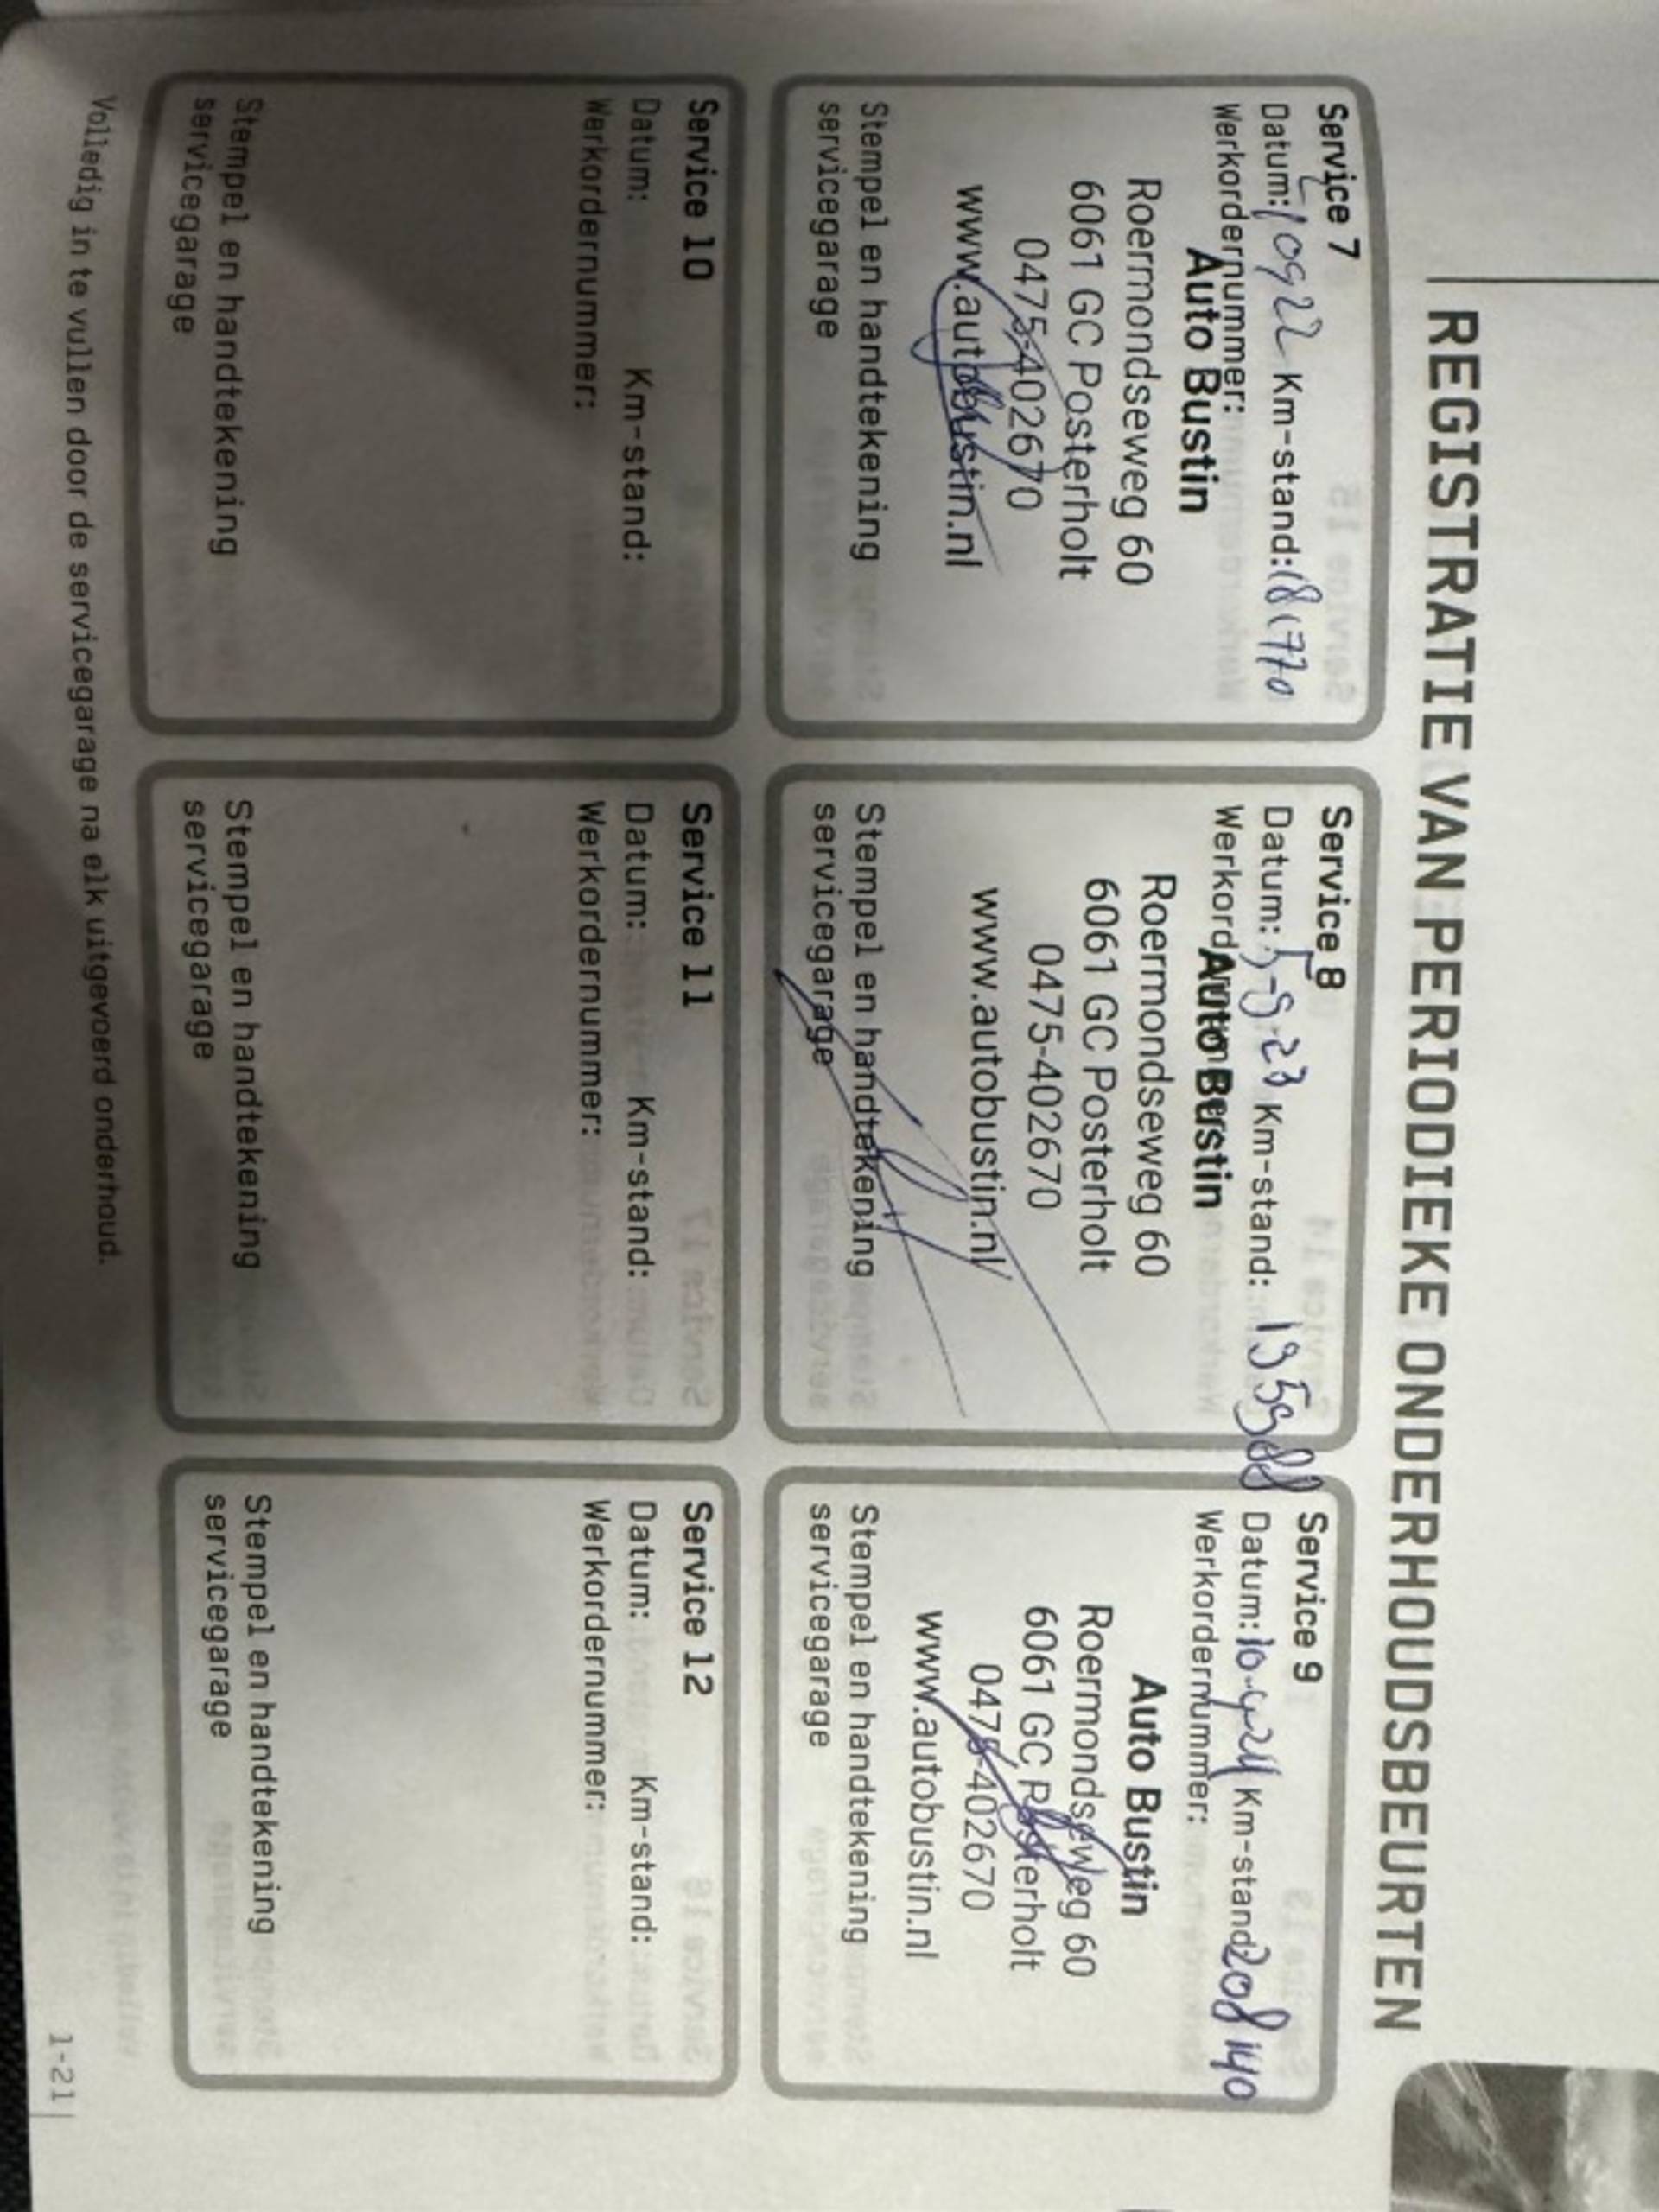 REGISTRATIE VAN PERIODIEKE ONDERHOUDSBEURTEN
Service 7
Datum: 10922 Km-stand: 181770
Werkordernummer:
Auto Bustin
Roermondseweg 60
6061 GC Posterholt
0475-402670
www.autobustin.nl
Stempel en handtekening
servicegarage
Service 8
Datum: 5-9-23 Km-stand: 195988
Werkordernummer:
Auto Bustin
Roermondseweg 60
6061 GC Posterholt
0475-402670
www.autobustin.nl
Stempel en handtekening
servicegarage
Service 9
Datum: 10-9-24 Km-stand: 208140
Werkordernummer:
Auto Bustin
Roermondseweg 60
6061 GC Posterholt
0475-402670
www.autobustin.nl
Stempel en handtekening
servicegarage
Service 10
Datum: Km-stand:
Werkordernummer:
Stempel en handtekening
servicegarage
Service 11
Datum: Km-stand:
Werkordernummer:
Stempel en handtekening
servicegarage
Service 12
Datum: Km-stand:
Werkordernummer:
Stempel en handtekening
servicegarage
Volledig in te vullen door de servicegarage na elk uitgevoerd onderhoud.
1-21